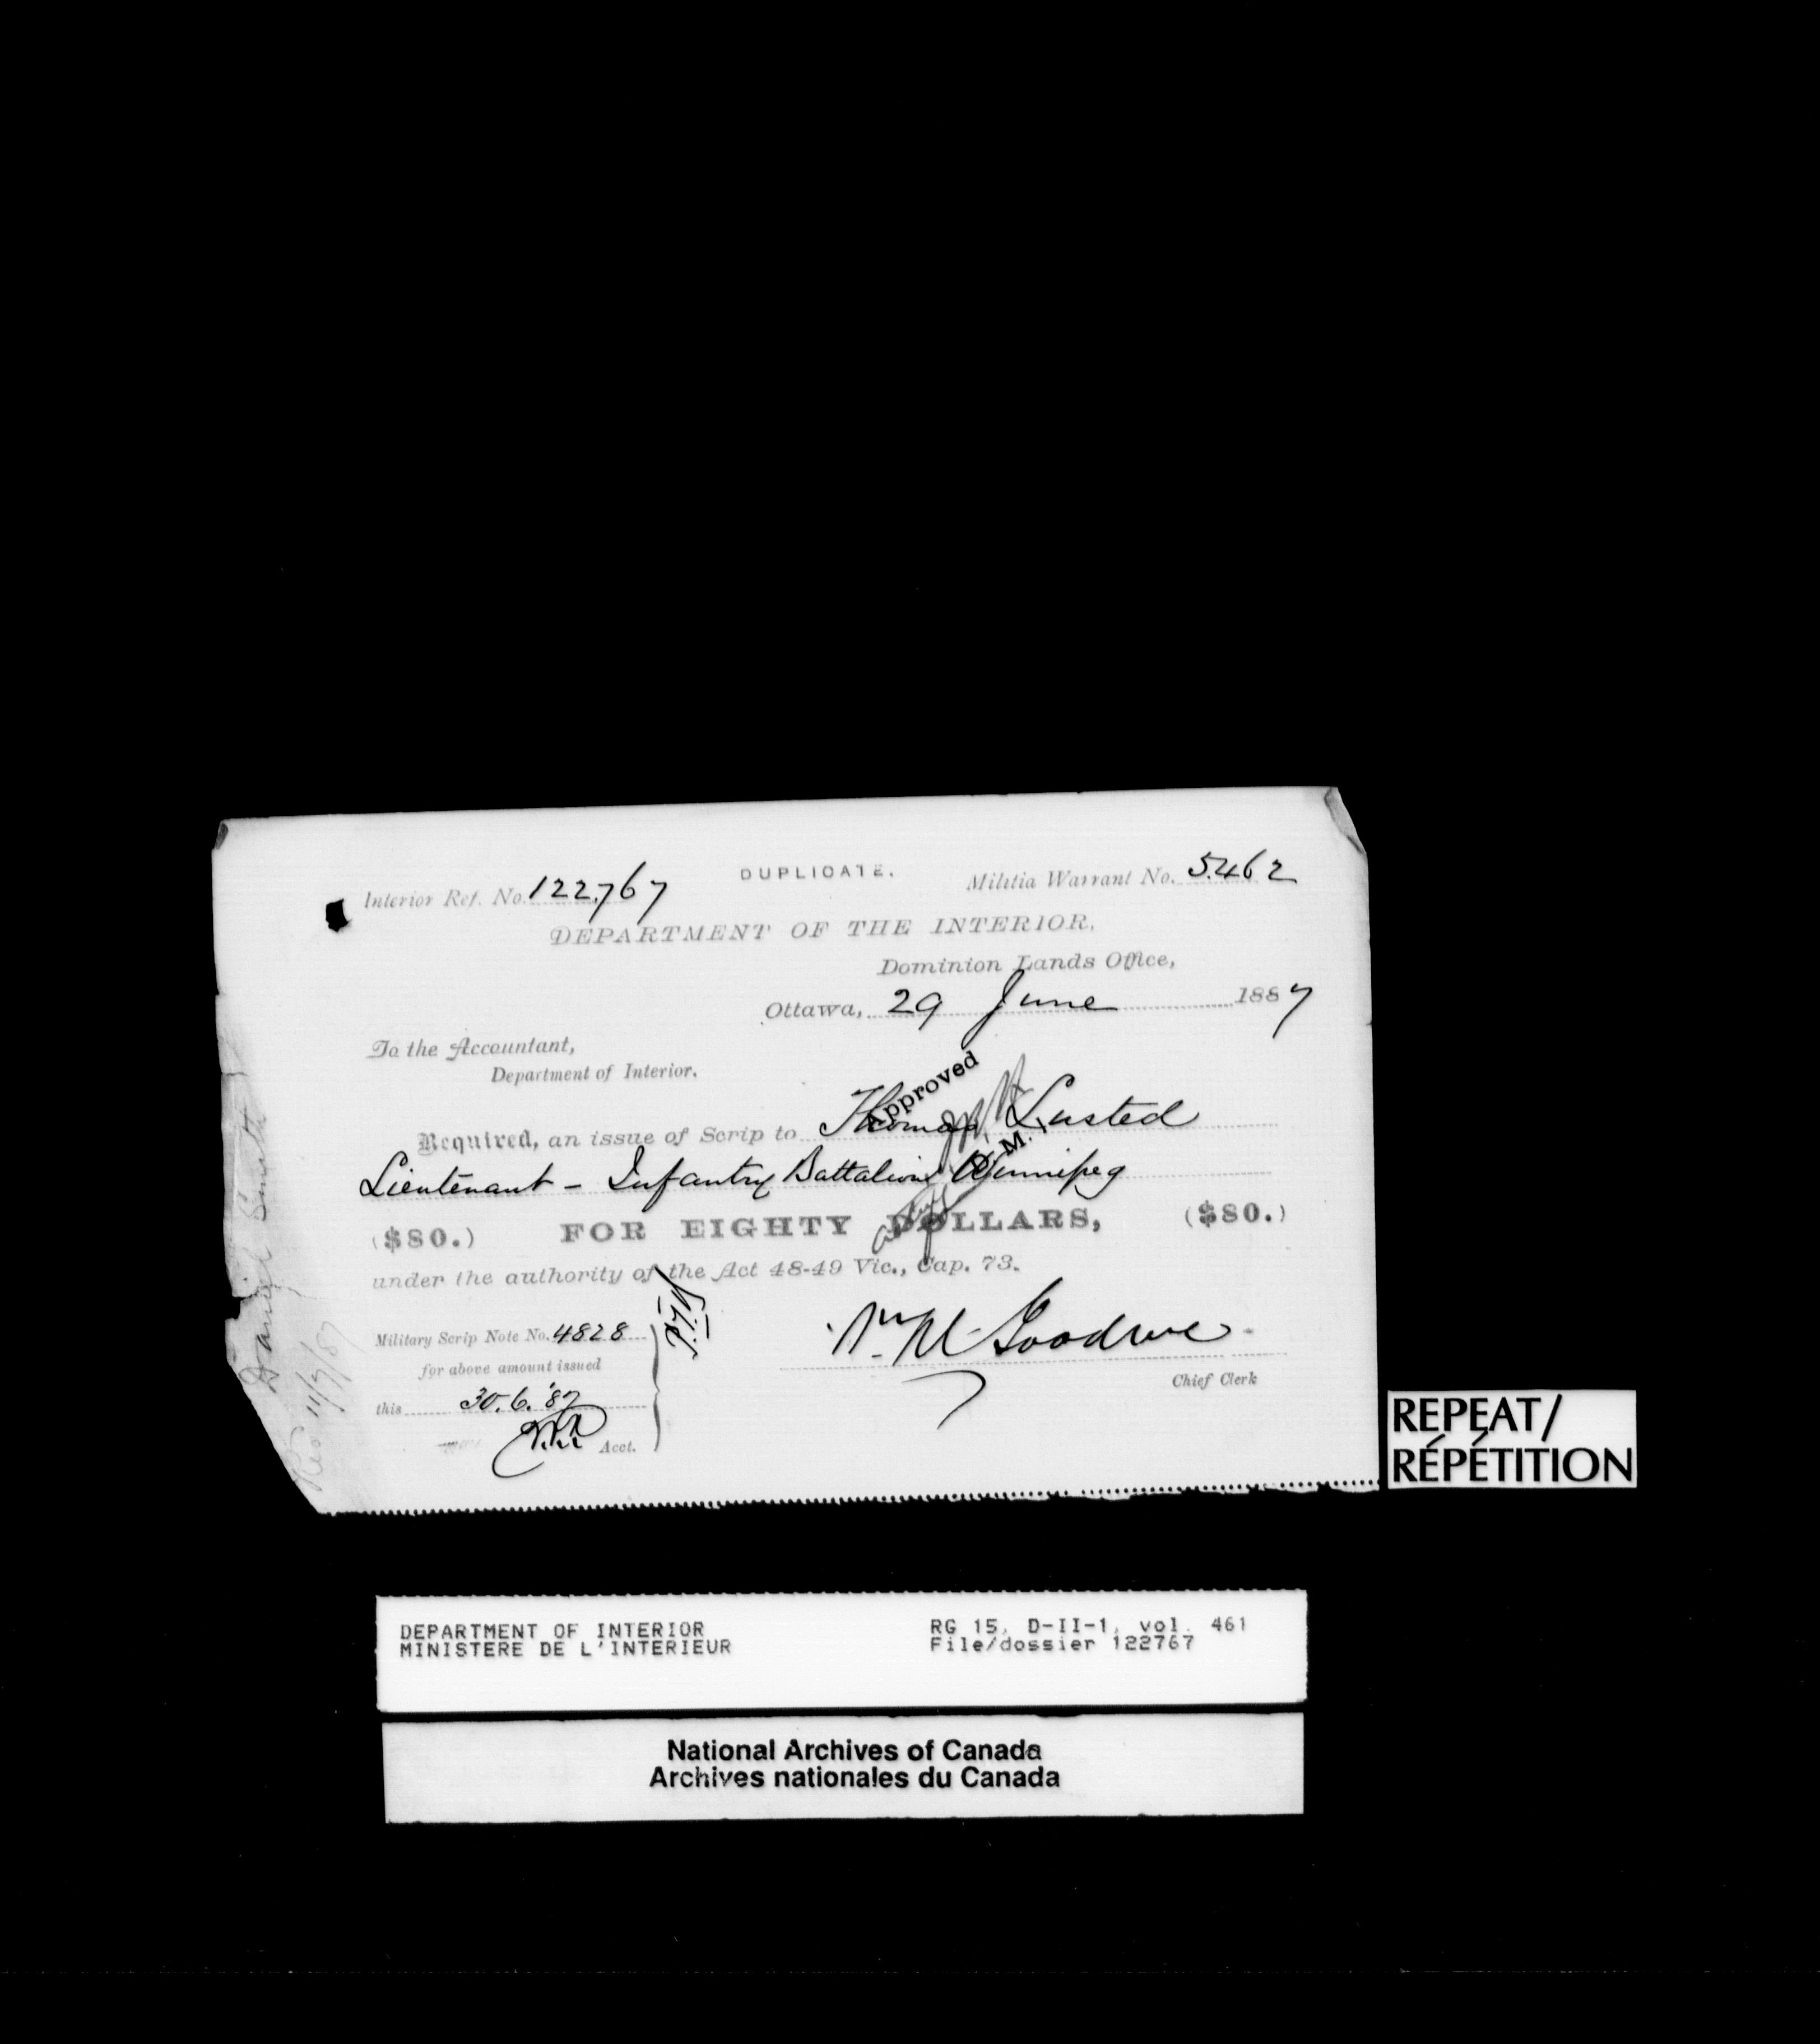 Interior Ref. No. 122767
DUPLICATE.
Militia Warrant No. 5462
DEPARTMENT OF THE INTERIOR.
Dominion Lands Office,
Ottawa, 29 June 1887
To the Accountant,
Department of Interior.
Approved
Required, an issue of Scrip to Thomas Lusted
D. M. I.
Lieutenant - Infantry Battalion Winnipeg
($80.) FOR EIGHTY DOLLARS, ($80.)
under the authority of the Act 48-49 Vic., Cap. 73.
Military Scrip Note No. 4828
for above amount issued
this 30.6.'87
Acct.
Chief Clerk
Daniel Smith
11/7/87
REPEAT/
RÉPÉTITION
DEPARTMENT OF INTERIOR
MINISTERE DE L'INTERIEUR
RG 15, D-II-1, vol. 461
File/dossier 122767
National Archives of Canada
Archives nationales du Canada